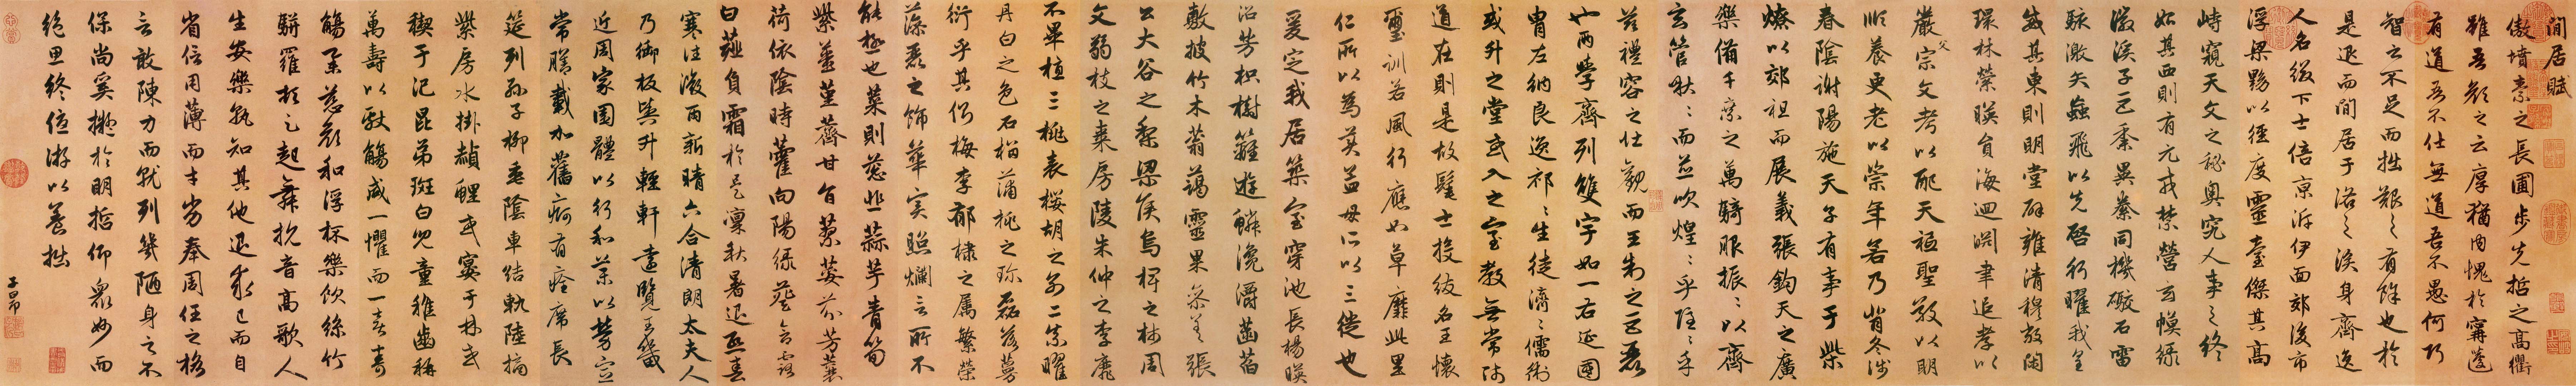 閒居賦
傲墳素之長圃步先哲之高衢
雖吾顏之云厚猶內愧於甯蘧
有道吾不仕無道吾不愚何巧
智之不足而拙艱之有餘也於
是退而閒居于洛之涘身齊逸
人名綴下士倍京泝伊面郊後市
浮梁黝以徑度靈臺傑其高
峙窺天文之秘奧究人事之終
始其西則有元戎禁營玄幙綠
徽溪子巨黍異絭同機礮石雷
駭激矢蝱飛以先啓行曜我皇
威其東則明堂辟雍清穆敞閑
環林縈暎負海迴淵聿追孝以
嚴父宗文考以配天祗聖敬以明
順養更老以崇年若乃背冬涉
春陰謝陽施天子有事于柴
燎以郊祖而展義張鈞天之廣
樂備千乘之萬騎服振〻以齊
玄管啾〻而並吹煌〻乎隱〻乎
茲禮容之壯觀而王制之巨麗
也兩學齊列雙宇如一右延國
胄左納良逸祁〻生徒濟〻儒術
或升之堂或入之室教無常師
道在則是故髦士投紱名王懷
璽訓若風行應如草靡此里
仁所以為美孟母所以三徙也
爰定我居築室穿池長楊暎
沼芳枳樹籬遊鱗瀺灂菡萏
敷披竹木蓊藹靈果參差張
公大谷之梨梁侯烏椑之柿周
文弱枝之棗房陵朱仲之李靡
不畢植三桃表櫻胡之別二柰曜
丹白之色石榴蒲桃之珍磊落蔓
衍乎其側梅李郁棣之属繁榮
藻麗之飾華實照爛言所不
能極也菜則葱韭蒜芋青筍
紫薑堇薺甘旨蓼荽芬芳蘘
荷依陰時藿向陽綠葵含露
白薤負霜於是凛秋暑退熙春
寒往微雨新晴六合清朗太夫人
乃御板輿升輕軒遠覽王畿
近周家園體以行和藥以勞宣
常膳載加舊痾有痊席長
筵列孫子柳垂陰車結軌陸摘
紫房水掛赬鯉或宴于林或
禊于汜昆弟斑白兒童稚齒稱
萬壽以獻觴咸一懼而一喜壽
觴舉慈顏和浮杯樂飲絲竹
駢羅頓足起舞抗音高歌人
生安樂孰知其他退求己而自
省信用薄而才劣奉周任之格
言敢陳力而就列幾陋身之不
保尚奚擬於明哲仰衆妙而
絕思終優游以養拙
子昂